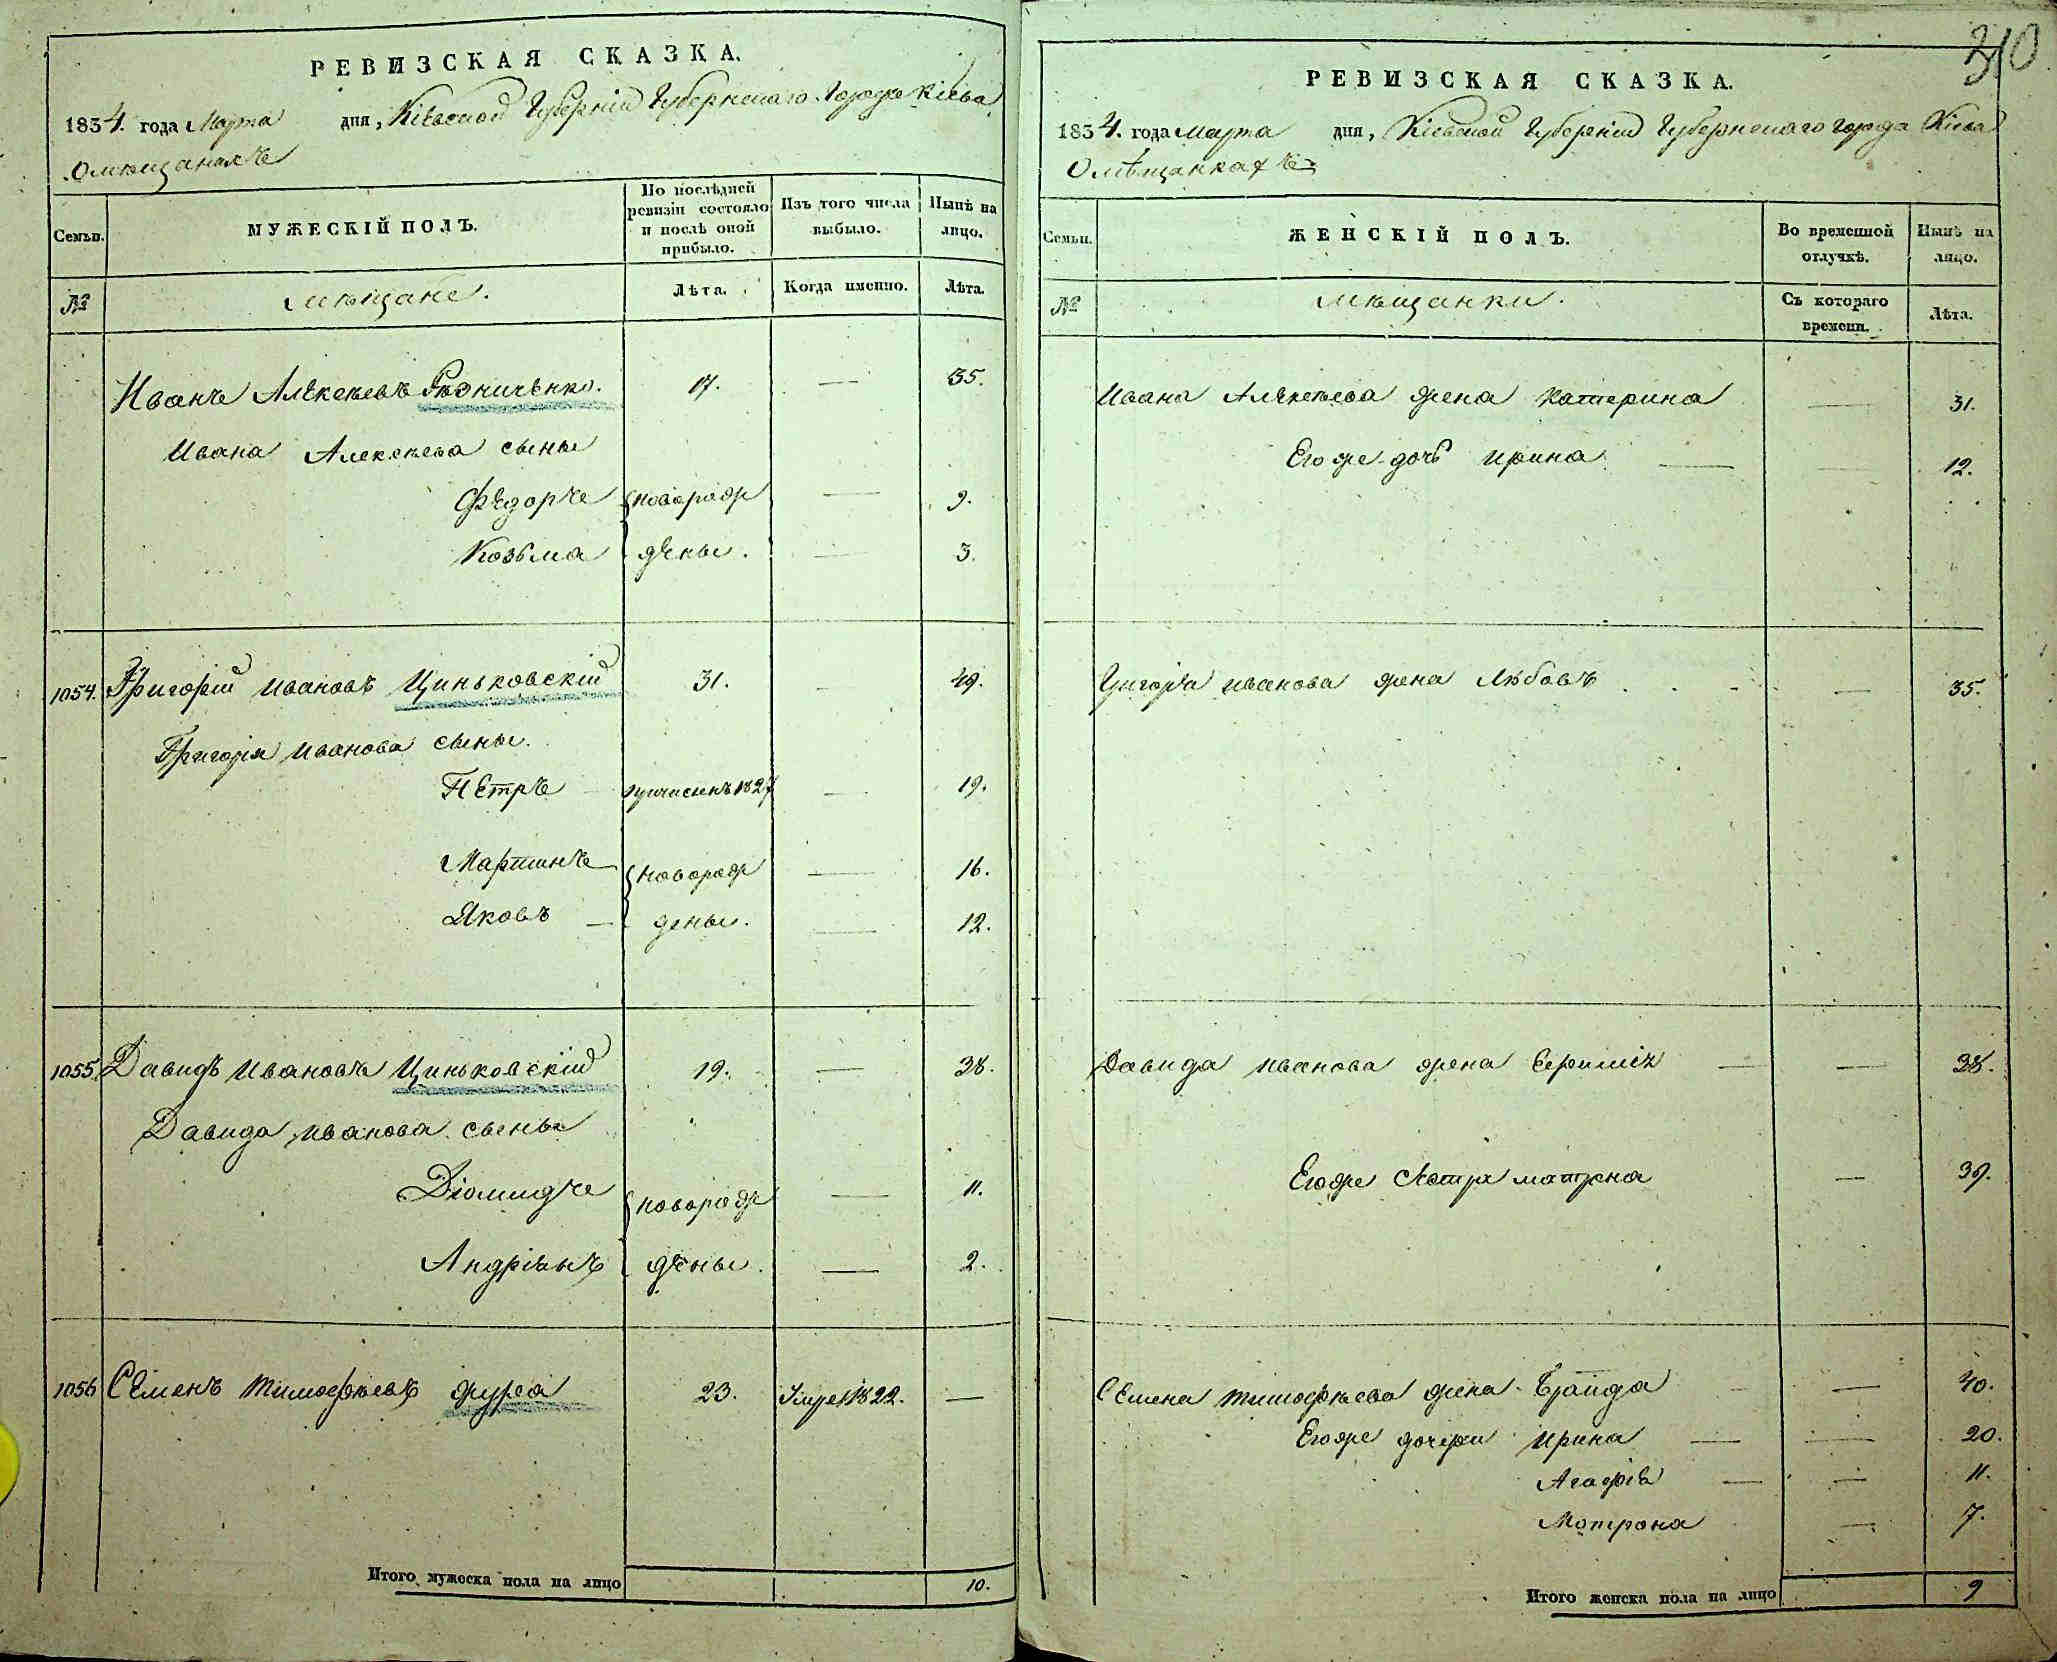 РЕВИЗСКАЯ СКАЗКА.
1834. года Марта дня, Кіевской Губерніи Губернскаго Города Кіева
О мѣщанахъ
Семьи.
МУЖЕСКІЙ ПОЛЪ.
По послѣдней ревизіи состояло и послѣ оной прибыло.
Изъ того числа выбыло.
Нынѣ на лицо.
№
мѣщане.
Лѣта.
Когда именно.
Лѣта.
Иванъ Алексѣевъ Рѣзниченко. 17. — 35.
Ивана Алексѣева сыны
Федоръ новорож — 9.
Козьма дены. — 3.
1054. Григорій Ивановъ Циньковскій 31. — 49.
Григорія Иванова сыны.
Петръ — причисленъ 1827 — 19.
Мартинъ новорож — 16.
Яковъ — дены. — 12.
1055 Давидъ Ивановъ Циньковскій 19. — 38.
Давида Иванова сыны
Діомидъ новорож — 11.
Андріанъ дены. — 2.
1056 Семенъ Тимофѣевъ 23. Умре 1822. —
Итого мужеска пола на лицо 10.
310
РЕВИЗСКАЯ СКАЗКА.
1834. года Марта дня, Кіевской Губерніи Губернскаго города Кіева
О мѣщанкахъ
Семьи.
ЖЕНСКІЙ ПОЛЪ.
Во временной отлучкѣ.
Нынѣ на лицо.
№
мѣщанки.
Съ котораго времени.
Лѣта.
Ивана Алексѣева жена Катерина — 31.
Его же дочь Ирина — — 12.
Григорія Иванова жена Любовъ — 35.
Давида Иванова жена — — 28.
Его же сестра матрона — 39.
Семена Тимофѣева жена — — 40.
Его же дочери Ирина — — 20.
Агафія — — 11.
Мотрона — 7.
Итого женска пола на лицо 9